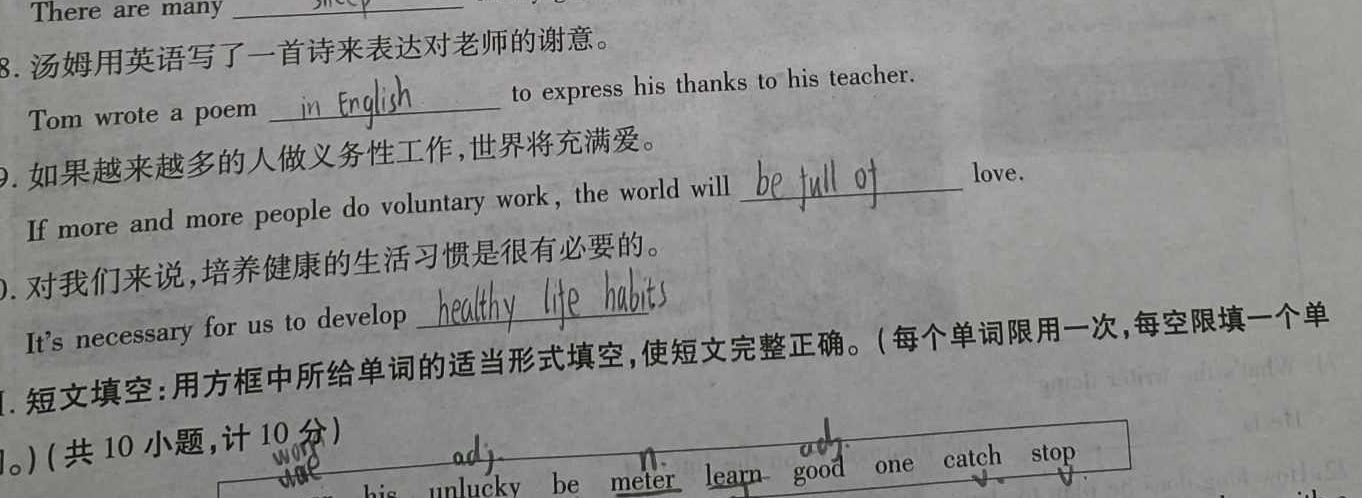 There are many sheep
8. 汤姆用英语写了一首诗来表达对老师的谢意。
Tom wrote a poem in English to express his thanks to his teacher.
9. 如果越来越多的人做义务性工作,世界将充满爱。
If more and more people do voluntary work, the world will be full of love.
0. 对我们来说,培养健康的生活习惯是很有必要的。
It's necessary for us to develop healthy life habits
I. 短文填空:用方框中所给单词的适当形式填空,使短文完整正确。(每个单词限用一次,每空限填一个单
。)(共 10 小题,计 10 分)
adj. n. adj.
his unlucky be meter learn good one catch stop
v. v.